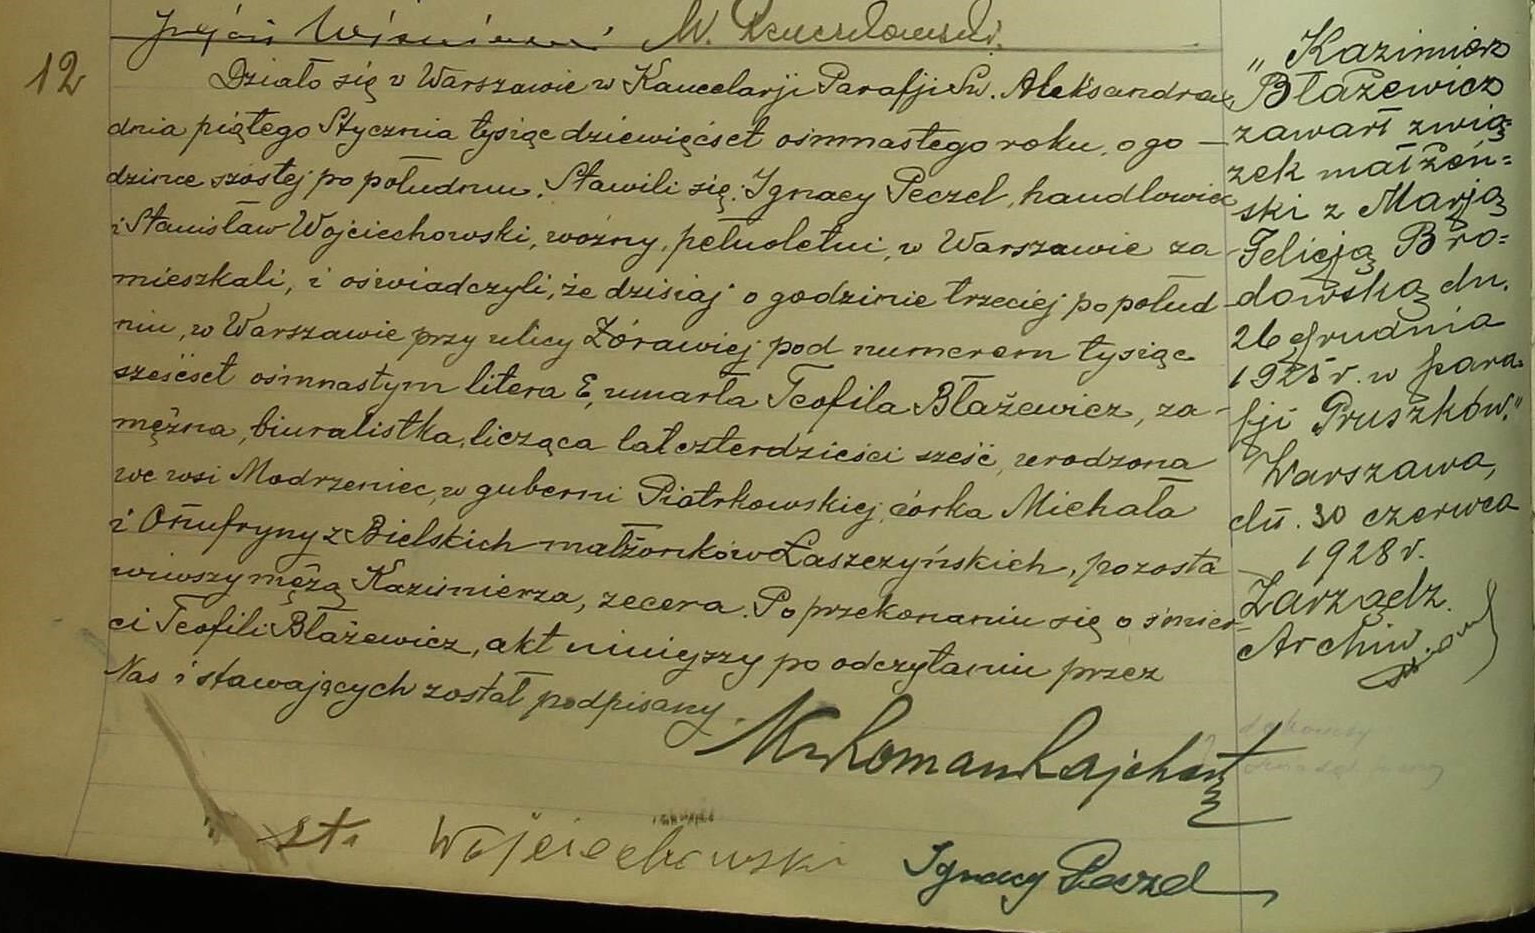 12
Działo się w Warszawie w Kancelarji Parafji Św. Aleksandra
dnia piątego Stycznia tysiąc dziewięćset ośmnastego roku, o go
dzinie szóstej po południu. Stawili się: Ignacy Peczel, handlowiec
i Stanisław Wojciechowski, woźny, pełnoletni, w Warszawie za
mieszkali, i oświadczyli, że dzisiaj o godzinie trzeciej po połud
niu, w Warszawie przy ulicy Żórawiej pod numerem tysiąc
sześćset ośmnastym litera E, umarła Teofila Błażewicz, za-
mężna, biuralistka, licząca lat czterdzieści sześć, urodzona
we wsi Modrzeniec, w guberni Piotrkowskiej, córka Michała
i Onufryny z Bielskich małżonków Łaszczyńskich, pozosta
wiwszy męża Kazimierza, zecera. Po przekonaniu się o śmier
ci Teofili Błażewicz, akt niniejszy po odczytaniu przez
Nas i stawających został podpisany.
Roman Rajchert
St. Wojciechowski
Ignacy Peczel
„Kazimierz
Błażewicz
zawarł zwią=
zek małżeń=
ski z Marją
Felicją Bro=
dowską dn.
26 grudnia
1925 r. w para
fji Pruszków."
Warszawa,
dn. 30 czerwca
1928 r.
Zarządz.
Archiw.